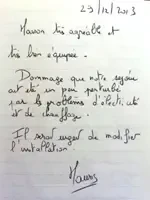 29/12/2013
Maison très agréable et
très bien équipée.
Dommage que notre séjour
ait été un peu perturbé
par les problèmes d'électricité
et de chauffage.
Il serait urgent de modifier
l'installation.